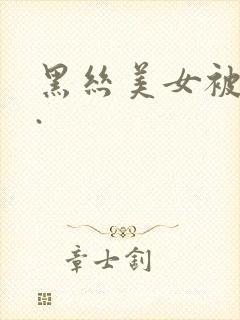 黑丝美女被
.
章士釗